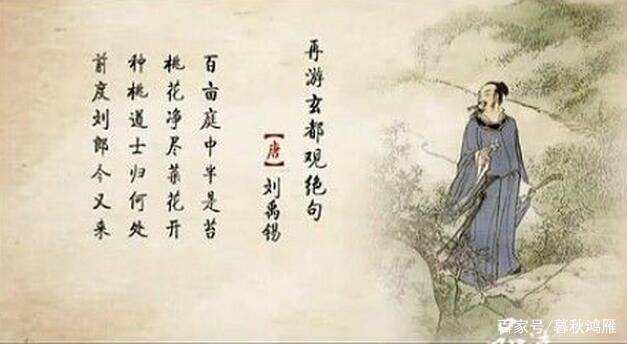 再游玄都观绝句
【唐】刘禹锡
百亩庭中半是苔
桃花净尽菜花开
种桃道士归何处
前度刘郎今又来
百家号/暮秋鸿雁